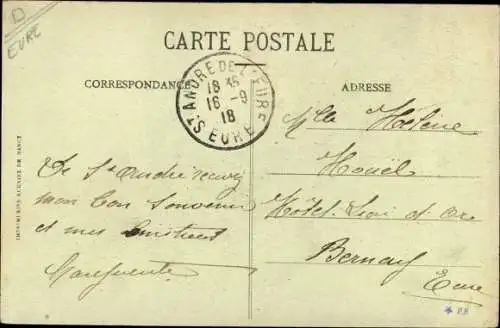 D
EURE
CARTE POSTALE
CORRESPONDANCE
ADRESSE
ST ANDRE DE L'EURE
18 35
16 -9
18
EURE
IMPRIMERIES REUNIES DE NANCY
De St André recevez
mon bon Souvenir
et mes
Marguerite
Mlle Hélène
Houël
Hôtel Lion d'Or
Bernay
Eure